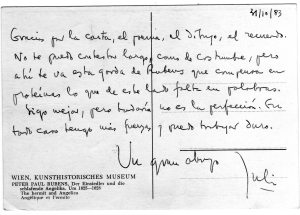 21/10/83
Gracias por la carta, el poema, el dibujo, el recuerdo.
No te puedo contestar largo, como de costumbre, pero
ahí te va esta gorda de Rubens que compensa en
proteínas lo que de este lado falta en palabras.
Sigo mejor, pero todavía no es la perfección. En
todo caso tengo más fuerzas y puedo trabajar duro.
Un gran abrazo
Julio
WIEN, KUNSTHISTORISCHES MUSEUM
PETER PAUL RUBENS, Der Einsiedler und die
schlafende Angelika. Um 1625—1628
The hermit and Angelica
Angélique et l'ermite